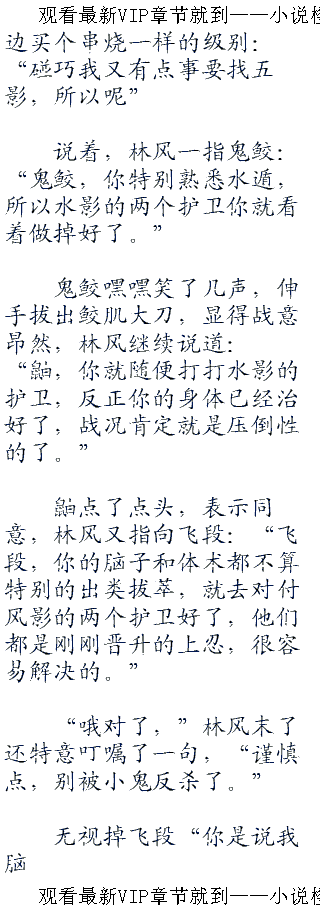 观看最新VIP章节就到——小说
边买个串烧一样的级别：
“碰巧我又有点事要找五
影，所以呢”
说着，林风一指鬼鲛：
“鬼鲛，你特别熟悉水遁，
所以水影的两个护卫你就看
着做掉好了。”
鬼鲛嘿嘿笑了几声，伸
手拔出鲛肌大刀，显得战意
昂然，林风继续说道：
“鼬，你就随便打打水影的
护卫，反正你的身体已经治
好了，战况肯定就是压倒性
的了。”
鼬点了点头，表示同
意，林风又指向飞段：“飞
段，你的脑子和体术都不算
特别的出类拔萃，就去对付
风影的两个护卫好了，他们
都是刚刚晋升的上忍，很容
易解决的。”
“哦对了，”林风末了
还特意叮嘱了一句，“谨慎
点，别被小鬼反杀了。”
无视掉飞段“你是说我
脑
观看最新VIP章节就到——小说